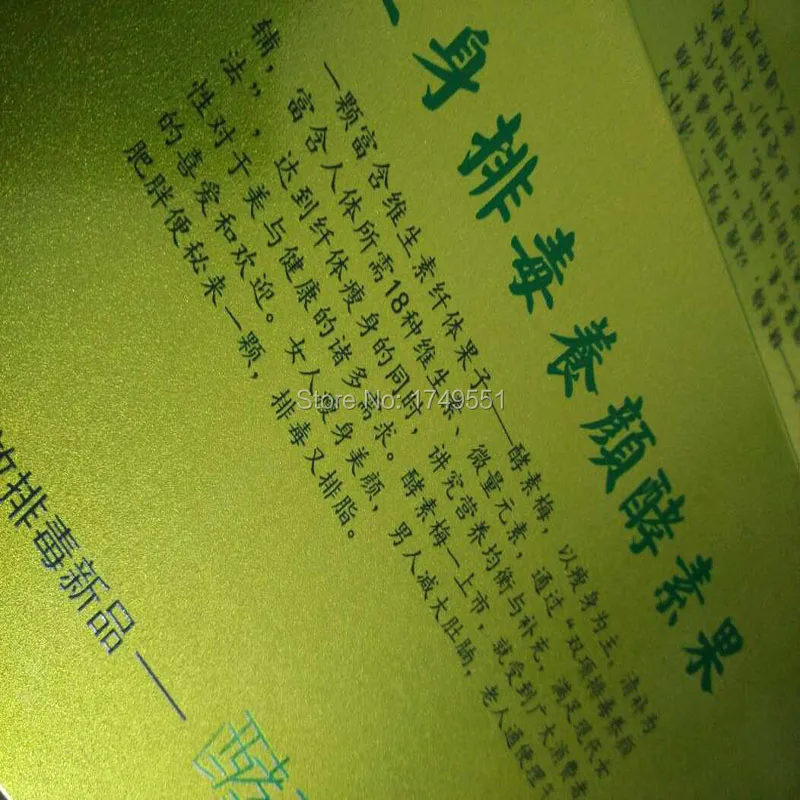 身排毒養顏酵素果
一颗富含维生素纤体果子——酵素梅，以瘦身为主，清补为
辅，富含人体所需18种维生素、微量元素，通过“双项排毒养颜
法”，达到纤体瘦身的同时，讲究营养均衡与补充，满足现代女
性对于美与健康的诸多需求。酵素梅一上市，就受到广大消费者
的喜爱和欢迎。女人瘦身美颜，男人减大肚腩，老人通便理
肥胖便秘来一颗，排毒又排脂。
排毒新品—
酵
Store No: 1749551